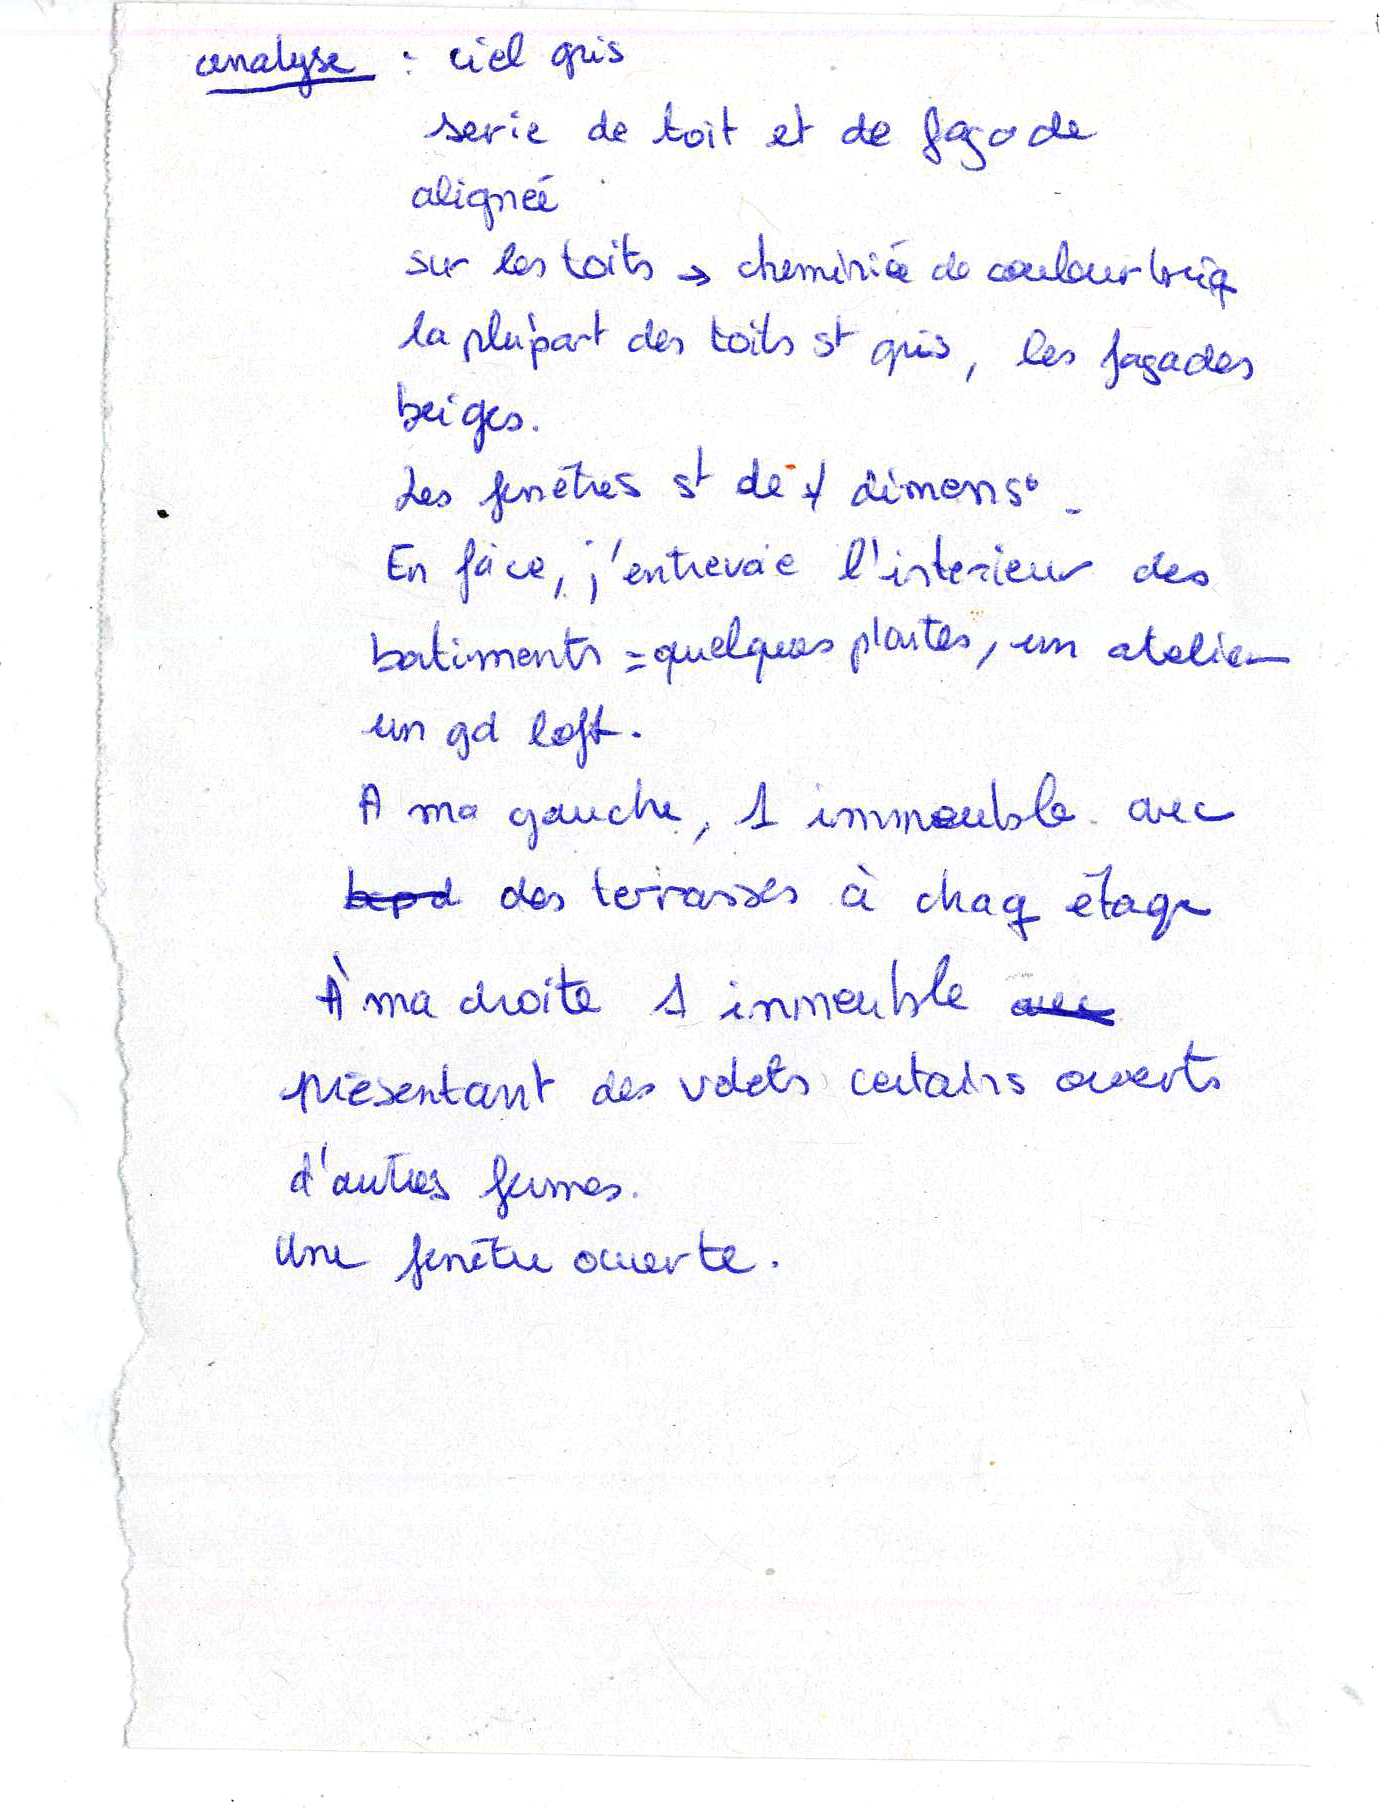 analyse : ciel gris
serie de toit et de façade
alignée
sur les toits → cheminée de couleur briq
la plupart des toits st gris, les façades
beiges.
Les fenêtres st de ≠ dimens°.
En face, j'entrevoie l'interieur des
batiments = quelques plantes, un atelier
un gd loft.
A ma gauche, 1 immeuble avec
des terrasses à chaq étage
À ma droite 1 immeuble avec
présentant des volets certains ouverts
d'autres fermes.
Une fenêtre ouverte.